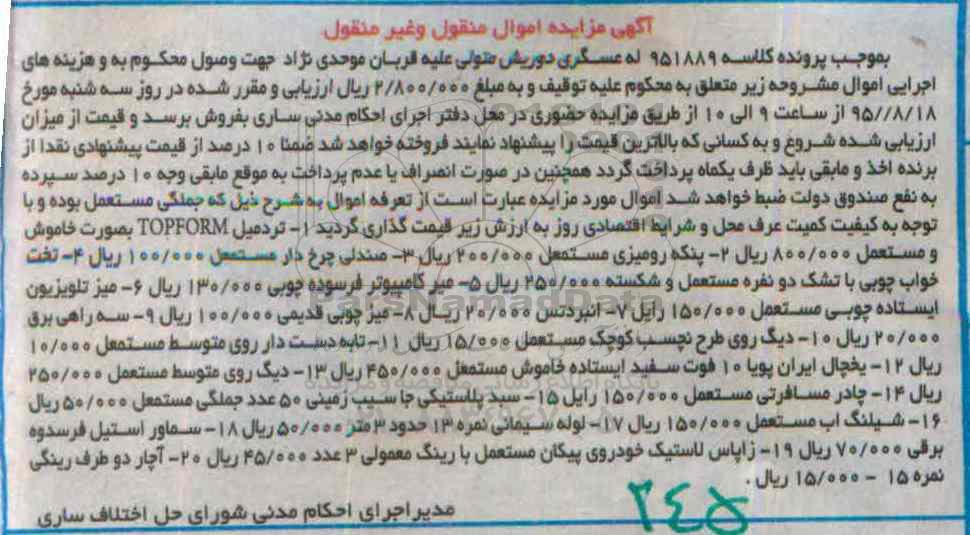 آگهی مزایده اموال منقول وغیر منقول
بموجب پرونده کلاسه ۹۵۱۸۸۹ له عسگری دوریش متولی علیه قربان موحدی نژاد جهت وصول محکوم به و هزینه های
اجرایی اموال مشروحه زیر متعلق به محکوم علیه توقیف و به مبلغ ۲/۸۰۰/۰۰۰ ریال ارزیابی و مقرر شده در روز سه شنبه مورخ
۹۵//۸/۱۸ از ساعت ۹ الی ۱۰ از طریق مزایده حضوری در محل دفتر اجرای احکام مدنی ساری بفروش برسد و قیمت از میزان
ارزیابی شده شروع و به کسانی که بالاترین قیمت را پیشنهاد نمایند فروخته خواهد شد ضمنا ۱۰ درصد از قیمت پیشنهادی نقدا از
برنده اخذ و مابقی باید ظرف یکماه پرداخت گردد همچنین در صورت انصراف یا عدم پرداخت به موقع مابقی وجه ۱۰ درصد سپرده
به نفع صندوق دولت ضبط خواهد شد اموال مورد مزایده عبارت است از تعرفه اموال به شرح ذیل که جملگی مستعمل بوده و با
توجه به کیفیت کمیت عرف محل و شرایط اقتصادی روز به ارزش زیر قیمت گذاری گردید ۱- تردمیل TOPFORM بصورت خاموش
و مستعمل ۸۰۰/۰۰۰ ریال ۲- پنکه رومیزی مستعمل ۲۰۰/۰۰۰ ریال ۳- صندلی چرخ دار مستعمل ۱۰۰/۰۰۰ ریال ۴- تخت
خواب چوبی با تشک دو نفره مستعمل و شکسته ۲۵۰/۰۰۰ ریال ۵- میز کامپیوتر فرسوده چوبی ۱۳۰/۰۰۰ ریال ۶- میز تلویزیون
ایستاده چوبی مستعمل ۱۵۰/۰۰۰ رایل ۷- انبردتس ۲۰/۰۰۰ ریال ۸- میز چوبی قدیمی ۱۰۰/۰۰۰ ریال ۹- سه راهی برق
۲۰/۰۰۰ ریال ۱۰- دیگ روی طرح نچسب کوچک مستعمل ۱۵/۰۰۰ ریال ۱۱- تابه دست دار روی متوسط مستمعل ۱۰/۰۰۰
ریال ۱۲- یخچال ایران پویا ۱۰ فوت سفید ایستاده خاموش مستمعل ۴۵۰/۰۰۰ ریال ۱۳- دیگ روی متوسط مستعمل ۲۵۰/۰۰۰
ریال ۱۴- چادر مسافرتی مستعمل ۱۵۰/۰۰۰ رایل ۱۵- سبد پلاستیکی جا سیب زمینی ۵۰ عدد جملگی مستمعل ۵۰/۰۰۰ ریال
۱۶- شیلنگ اب مستعمل ۱۵۰/۰۰۰ ریال ۱۷- لوله سیمانی نمره ۱۳ حدود ۳ متر ۵۰/۰۰۰ ریال ۱۸- سماور استیل فرسدوه
برقی ۷۰/۰۰۰ ریال ۱۹- زاپاس لاستیک خودروی پیکان مستعمل با رینگ معمولی ۳ عدد ۴۵/۰۰۰ ریال ۲۰- آچار دو طرف رینگی
نمره ۱۵ - ۱۵/۰۰۰ ریال .
مدیر اجرای احکام مدنی شورای حل اختلاف ساری
۲۴۵
ParsNamadData